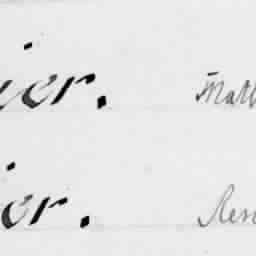 ier. Math
ier. Ren